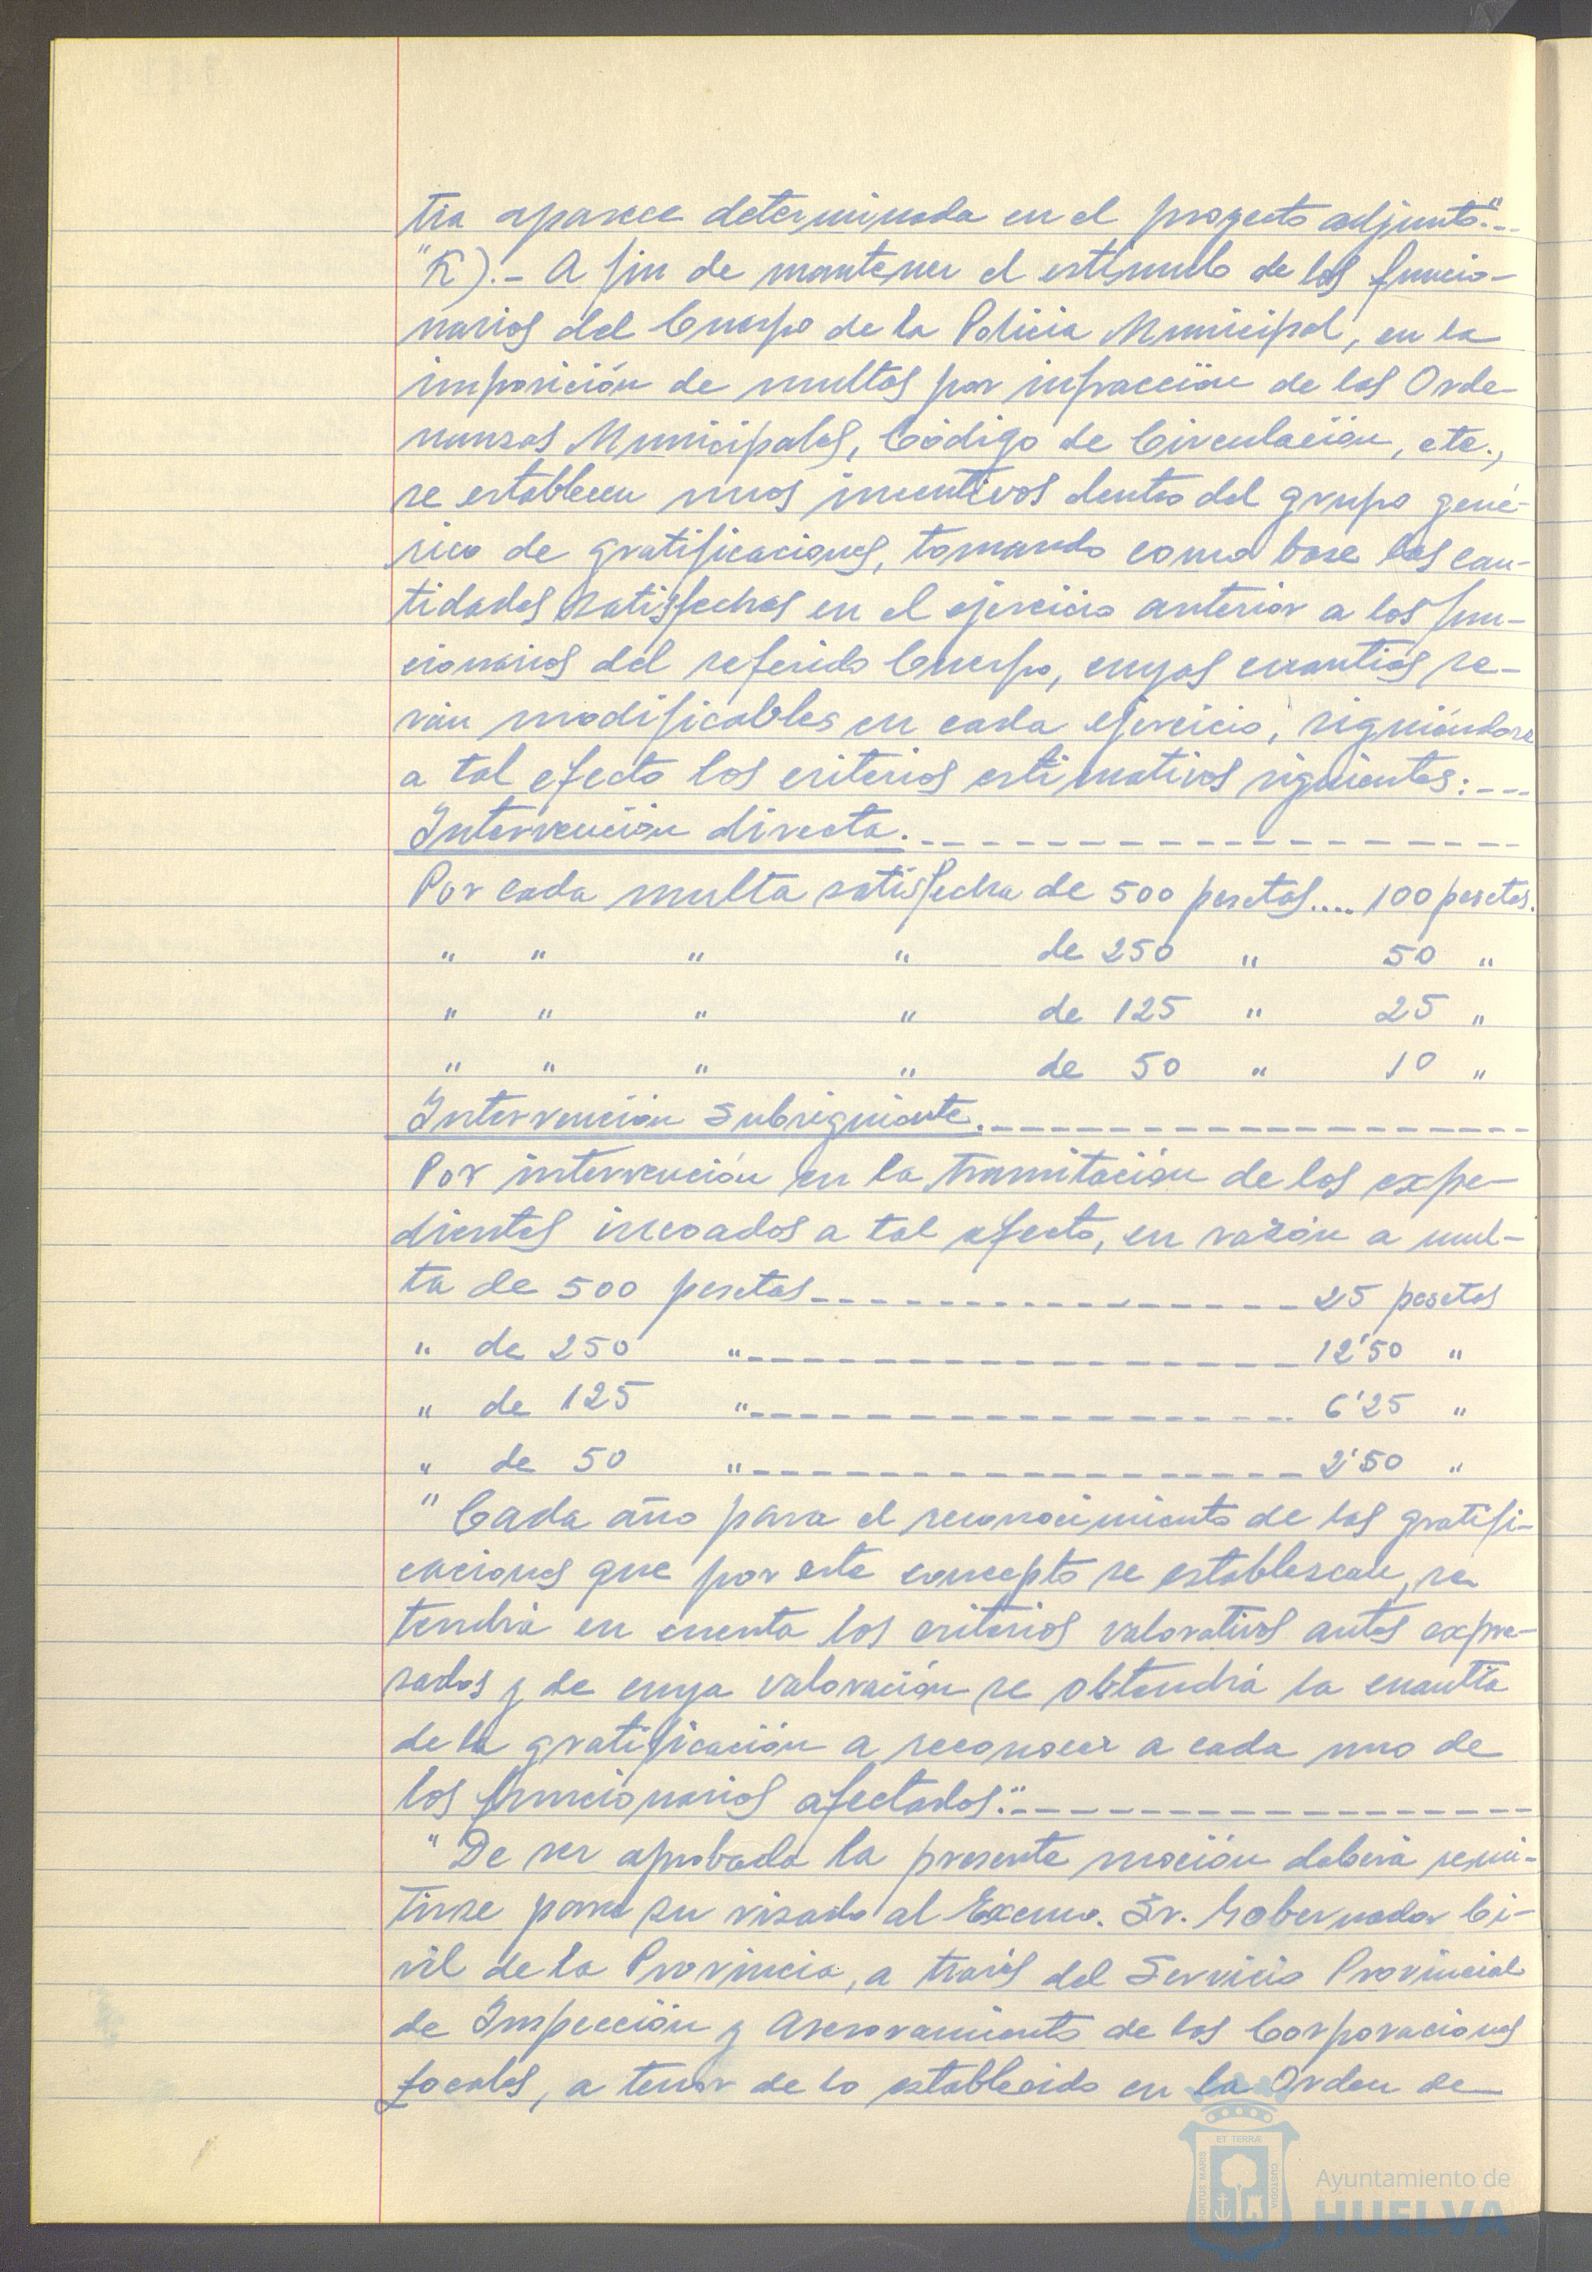 tía aparece determinada en el proyecto adjunto."---
"K).- A fin de mantener el estímulo de los funcio-
narios del Cuerpo de la Policia Municipal, en la
imposición de multas por infracción de las Orde-
nanzas Municipales, Código de Circulación, etc.,
se establecen unos incentivos dentro del grupo gené-
rico de gratificaciones, tomando como base las can-
tidades satisfechas en el ejercicio anterior a los fun-
cionarios del referido Cuerpo, cuyas cuantías se-
rán modificables en cada ejercicio, siguiéndose
a tal efecto los criterios estimativos siguientes:---
Intervención directa.------------------
Por cada multa satisfecha de 500 pesetas.... 100 pesetas.
" " " " de 250 " 50 "
" " " " de 125 " 25 "
" " " " de 50 " 10 "
Intervención subsiguiente.------------------
Por intervención en la tramitación de los expe-
dientes incoados a tal efecto, en razón a mul-
ta de 500 pesetas---------------- 25 pesetas
" de 250 "------------------ 12'50 "
" de 125 "------------------ 6'25 "
" de 50 "------------------ 2'50 "
"Cada año para el reconocimiento de las gratifi-
caciones que por este concepto se establezcan, se
tendrá en cuenta los criterios valorativos antes expre-
sados y de cuya valoración se obtendrá la cuantía
de la gratificación a reconocer a cada uno de
los funcionarios afectados."------------------
"De ser aprobada la presente moción deberá remi-
tirse para su visado al Excmo. Sr. Gobernador Ci-
vil de la Provincia, a través del Servicio Provincial
de Inspección y Asesoramiento de las Corporaciones
Locales, a tenor de lo establecido en la Orden de
PORTUS MARIS
ET TERRÆ
CUSTODIA
Ayuntamiento de
HUELVA